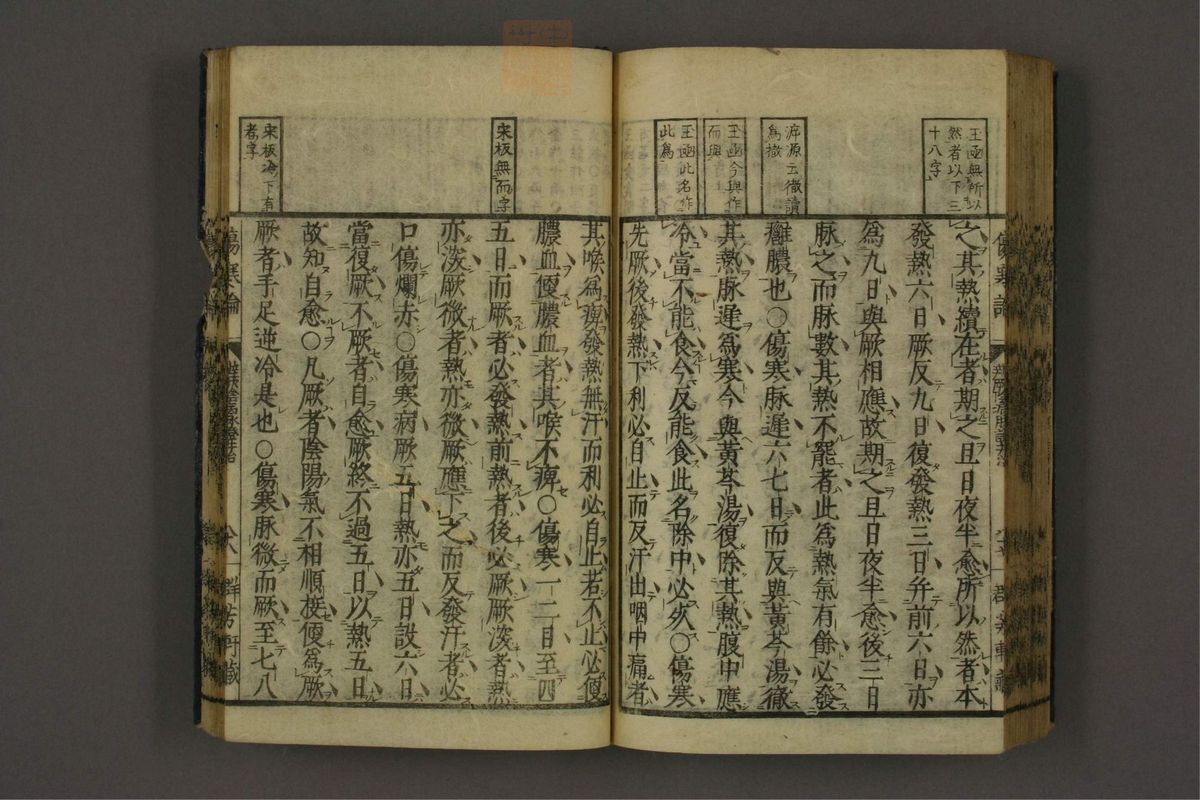 玉函無所以
然者以下三
十八字
㳽源云徹讀
為撤
玉函今與作
而與
玉函此名作
此為
之其熱續在者期之旦日夜半愈所以然者本
發熱六日厥反九日復發熱三日并前六日亦
為九日與厥相應故期之旦日夜半愈後三日
脉之而脉數其熱不罷者此為熱氣有餘必發
癰膿也○傷寒脉遲六七日而反與黃芩湯徹
其熱脉遲為寒今與黃芩湯復除其熱腹中應
冷當不能食今反能食此名除中必死○傷寒
先厥後發熱下利必自止而反汗出咽中痛者
傷寒論
宋板無而字
宋板為下有
者字
其喉為痹發熱無汗而利必自止若不止必便
膿血便膿血者其喉不痹○傷寒一二日至四
五日而厥者必發熱前熱者後必厥厥深者熱
亦深厥微者熱亦微厥應下之而反發汗者必
口傷爛赤○傷寒病厥五日熱亦五日設六日
當復厥不厥者自愈厥終不過五日以熱五日
故知自愈○凡厥者陰陽氣不相順接便為厥
厥者手足逆冷是也○傷寒脉微而厥至七八
傷寒論